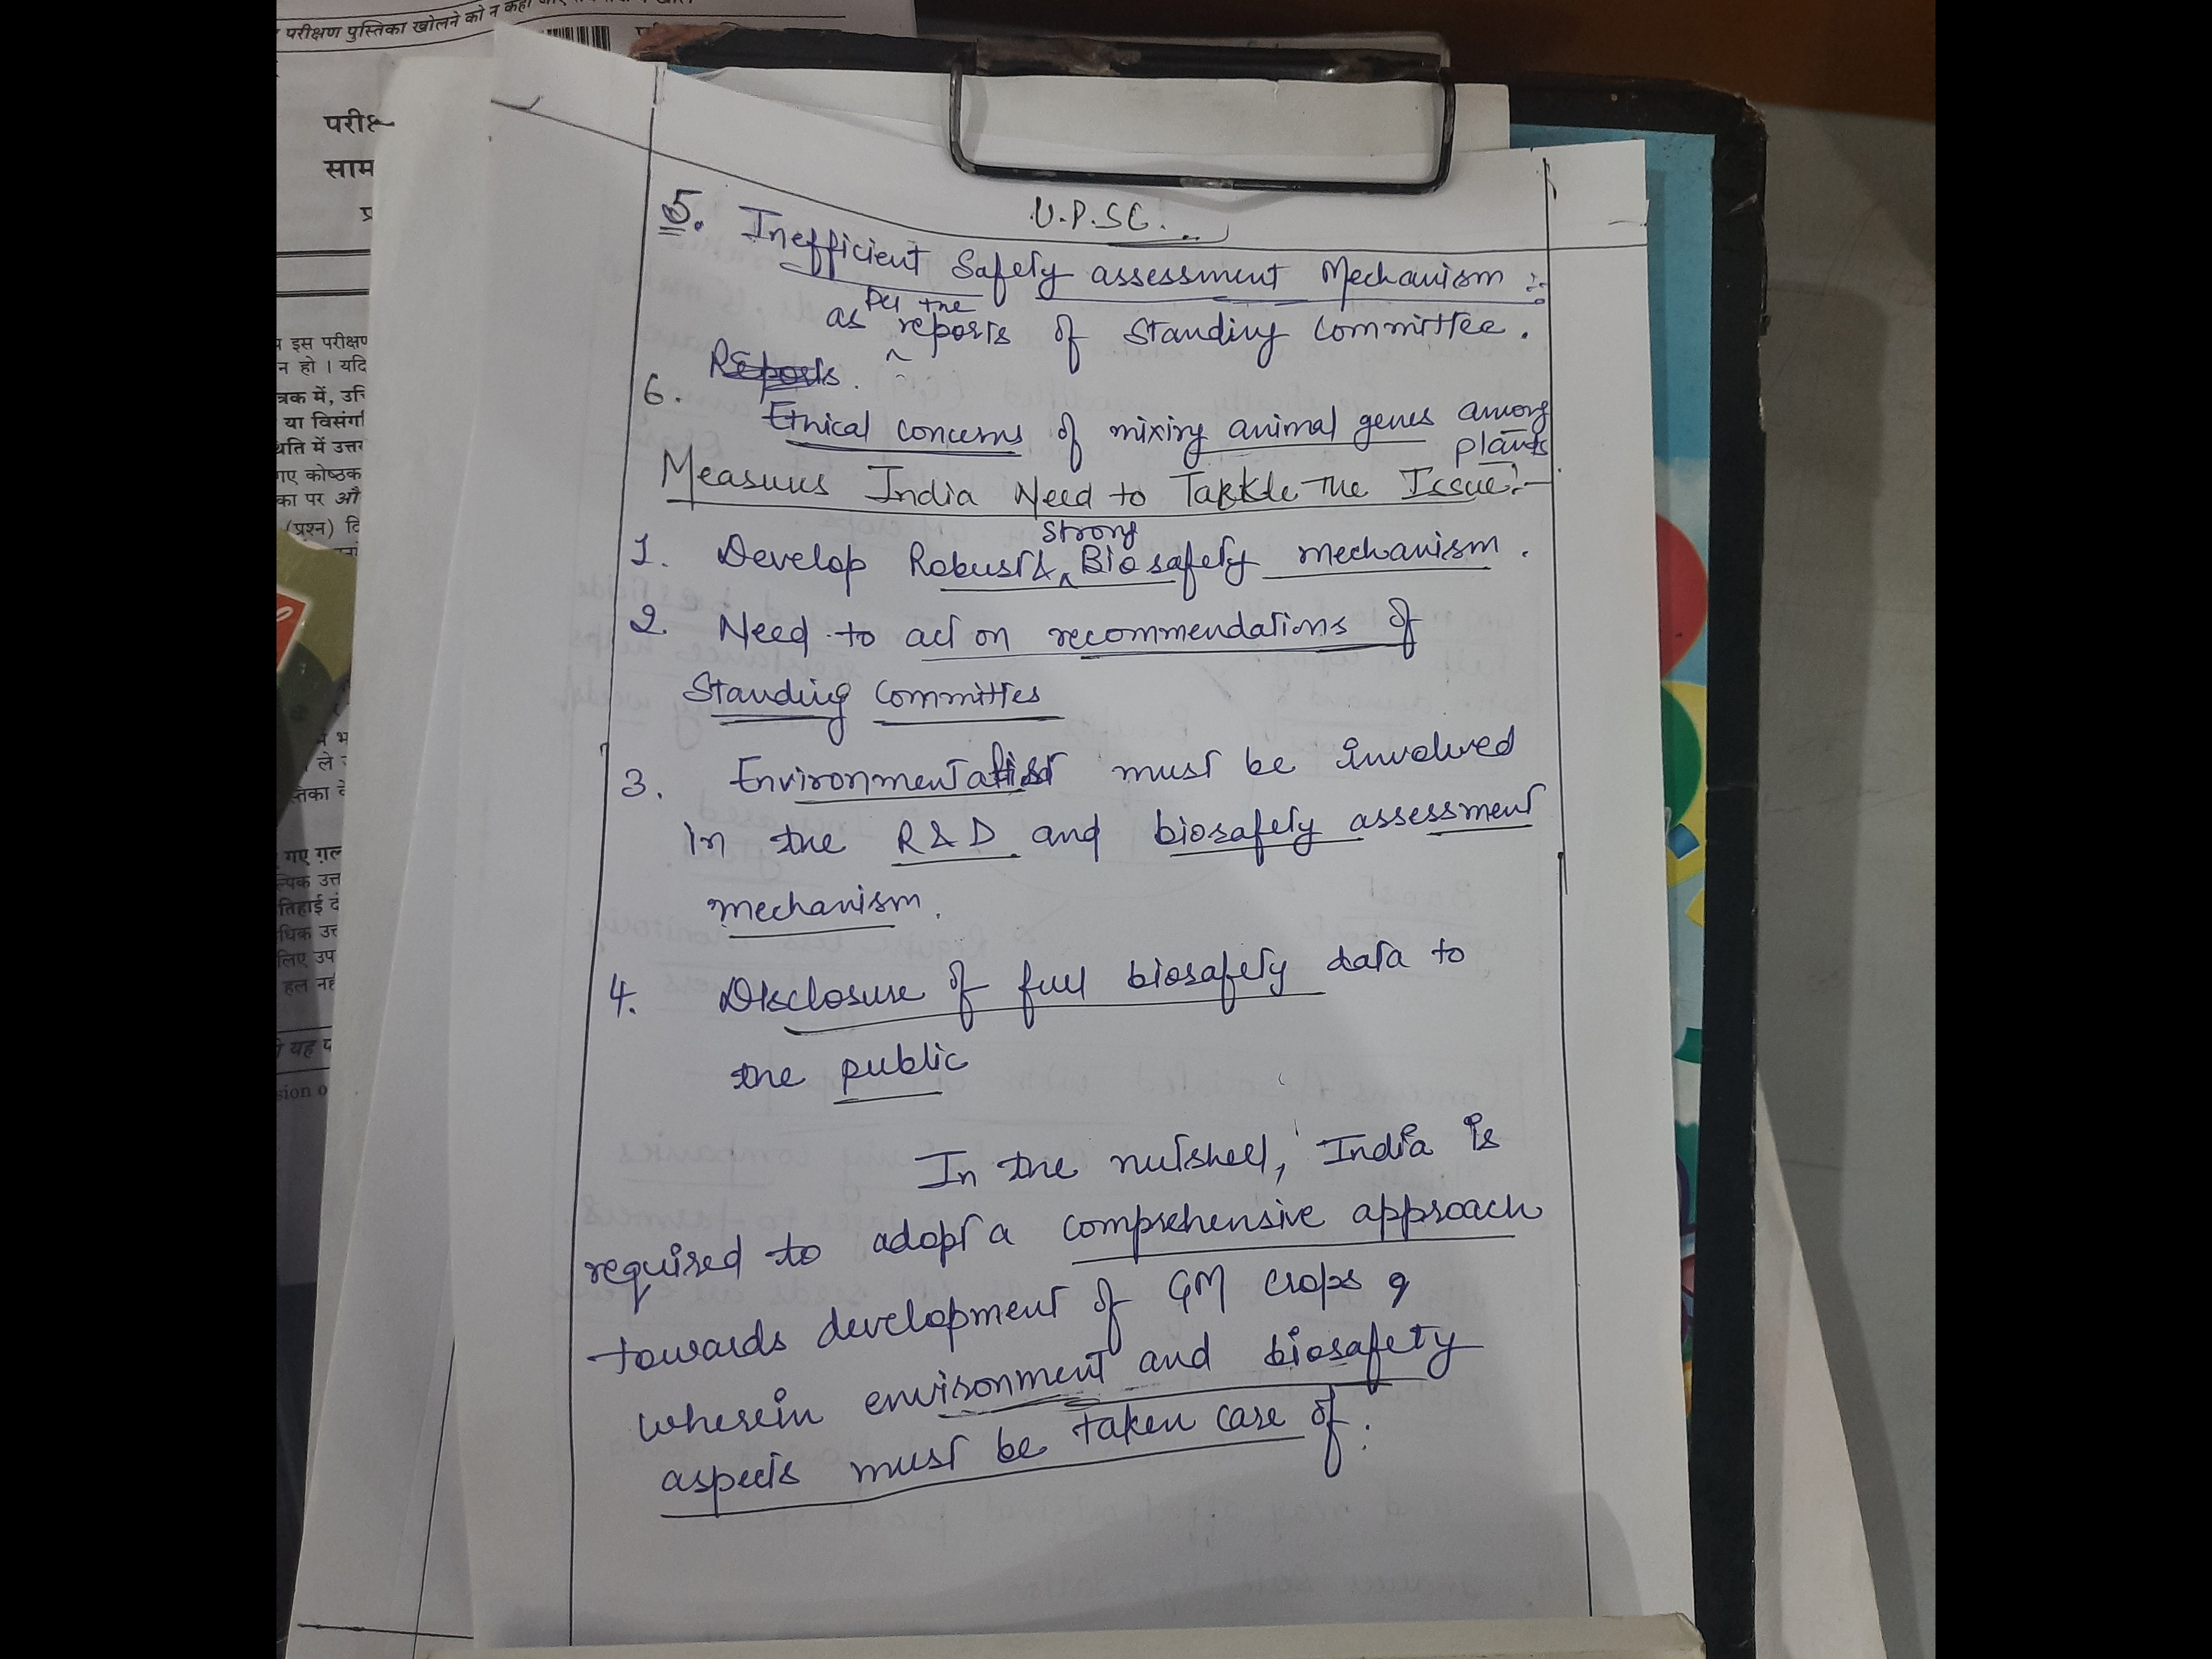 परीक्षण पुस्तिका खोलने को न कहा
परीक्ष
साम
प्र
इस परीक्षण
न हो । यदि
त्रक में, उचि
या विसंगति
थति में उत्तर
गए कोष्ठक
का पर औ
(प्रश्न) दि
ले
स्तिका के
गए ग़ल
ल्पिक उत्त
तिहाई दं
धिक उत्त
लिए उप
हल नहीं
यह प
sion o
U.P.SC...
5. Inefficient Safety assessment Mechanism :-
as per the reports of Standing Committee.
Reports.
6. Ethical concerns of mixing animal genes among
plants
Measures India Need to Takkle The Issue:-
1. Develop Robust & strong Biosafety mechanism.
2. Need to act on recommendations of
Standing Committes
3. Environmentalist must be involved
in the R&D and biosafety assessment
mechanism.
4. Disclosure of full biosafety data to
the public
In the nutshell, India is
required to adopt a comprehensive approach
towards development of GM crops,
wherein environment and biosafety
aspects must be taken care of.